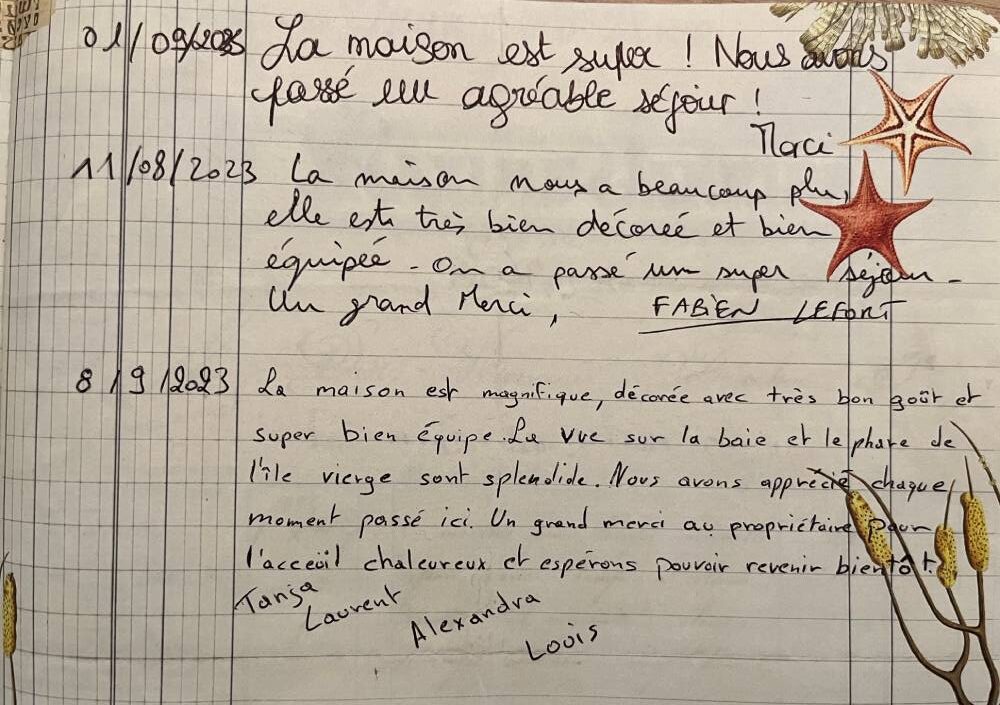 01/09/2023 La maison est super ! Nous avons
passé un agréable séjour !
Merci
11/08/2023 La maison nous a beaucoup plu,
elle est très bien décorée et bien
équipée - On a passé un super séjour -
Un grand Merci, FABIEN LEFORT
8/9/2023 La maison est magnifique, décorée avec très bon goût et
super bien équipe. La vue sur la baie et le phare de
l'île vierge sont splendide. Nous avons apprécié chaque
moment passé ici. Un grand merci au propriétaire pour
l'acceüil chaleureux et espérons pouvoir revenir bientôt.
Tanja
Laurent
Alexandra
Louis